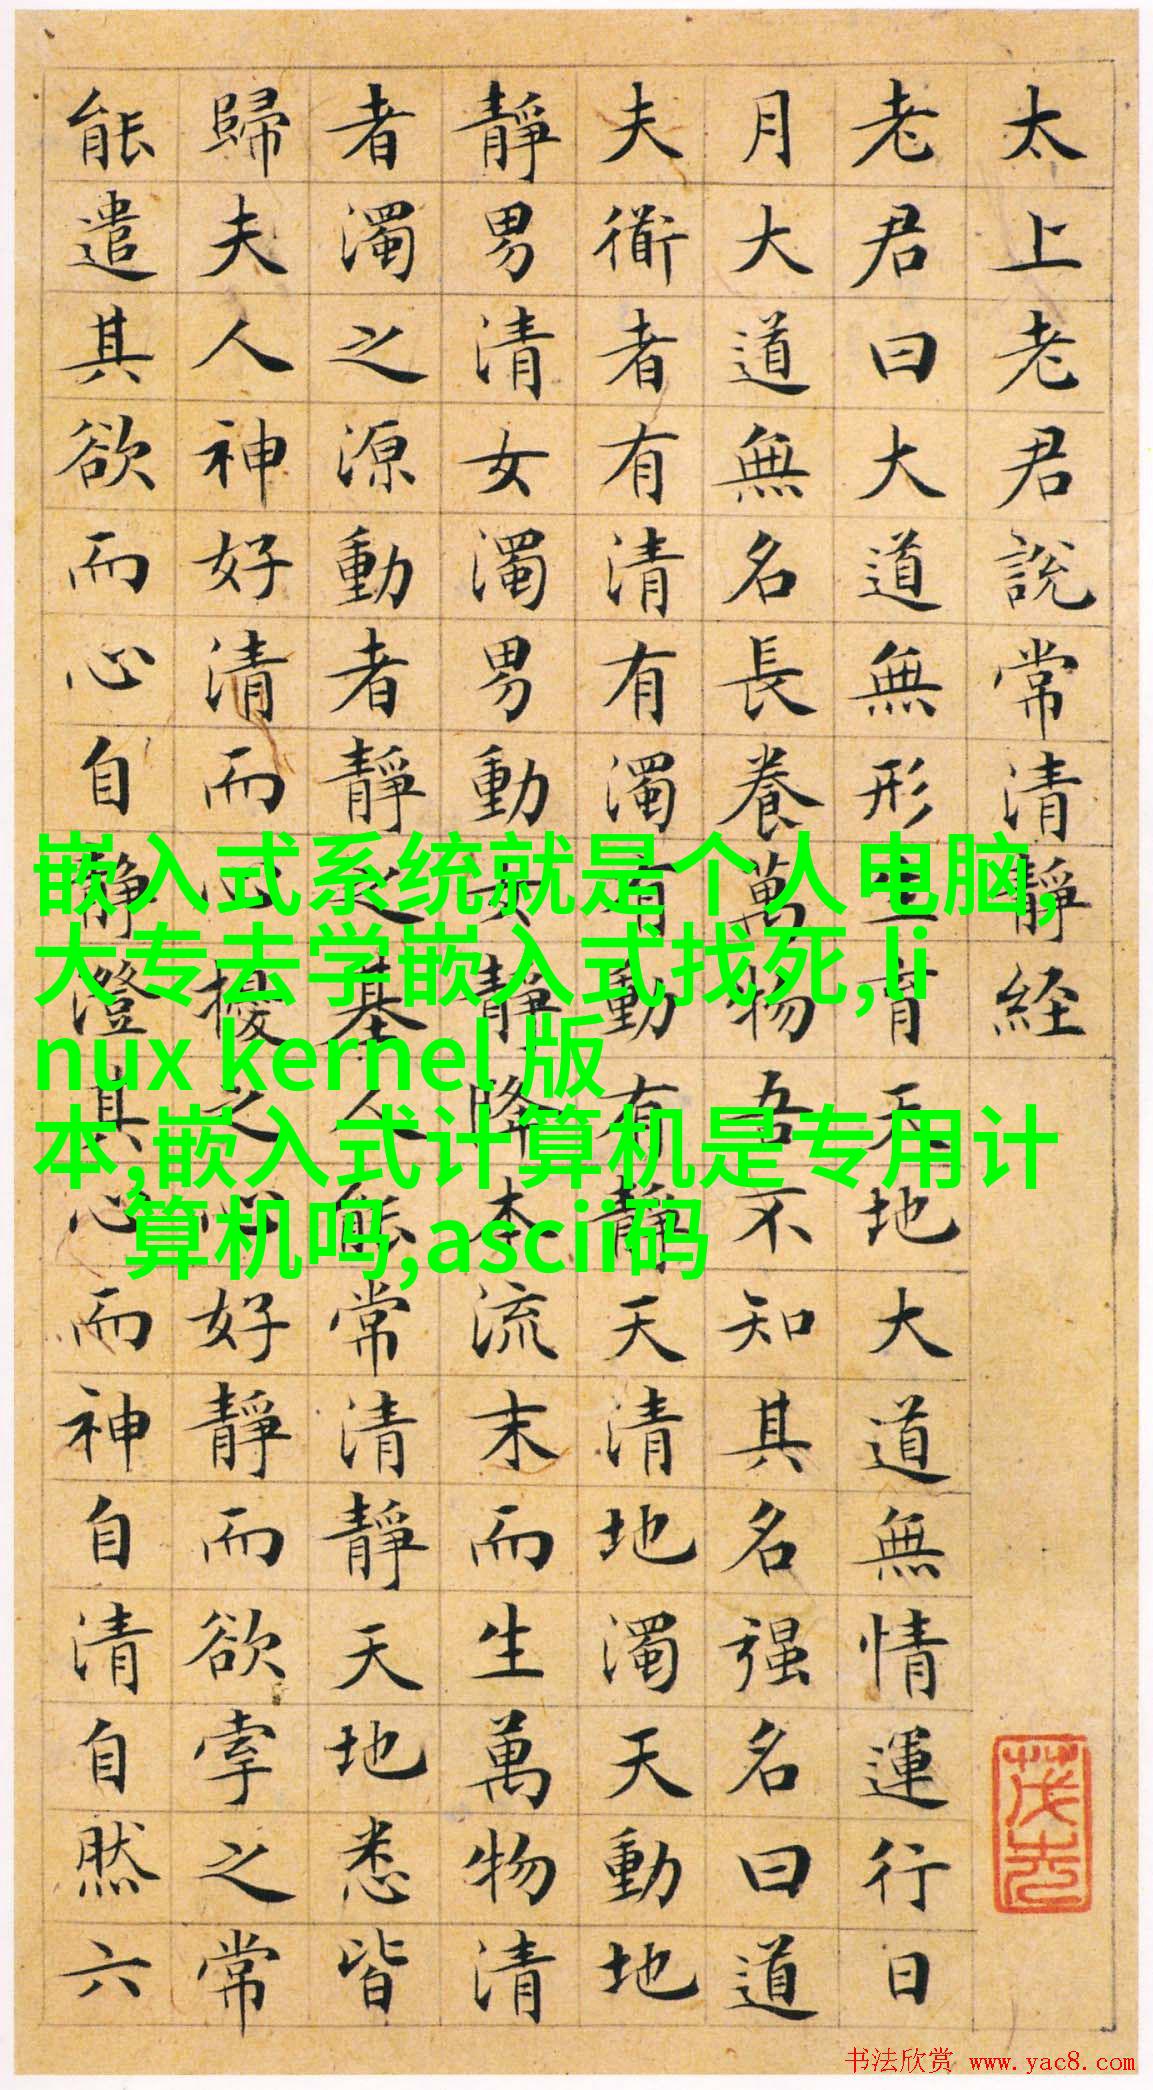 太上老君說常清靜経
老君曰大道無形生育天地大道無情運行日
月大道無名長養萬物吾不知其名强名曰道
夫衜者有清有濁有動有靜天清地濁天動地
靜男清女濁男動女靜降本流末而生萬物清
者濁之源動者靜之基人能常清靜天地悉皆
歸夫人神好清而心擾之心好靜而欲牽之常
能遣其欲而心自靜澄其心而神自清自然六
嵌入式系统就是个人电脑,
大专去学嵌入式找死,li
nux kernel 版
本,嵌入式计算机是专用计
算机吗,ascii码
书法欣赏 www.yac8.com